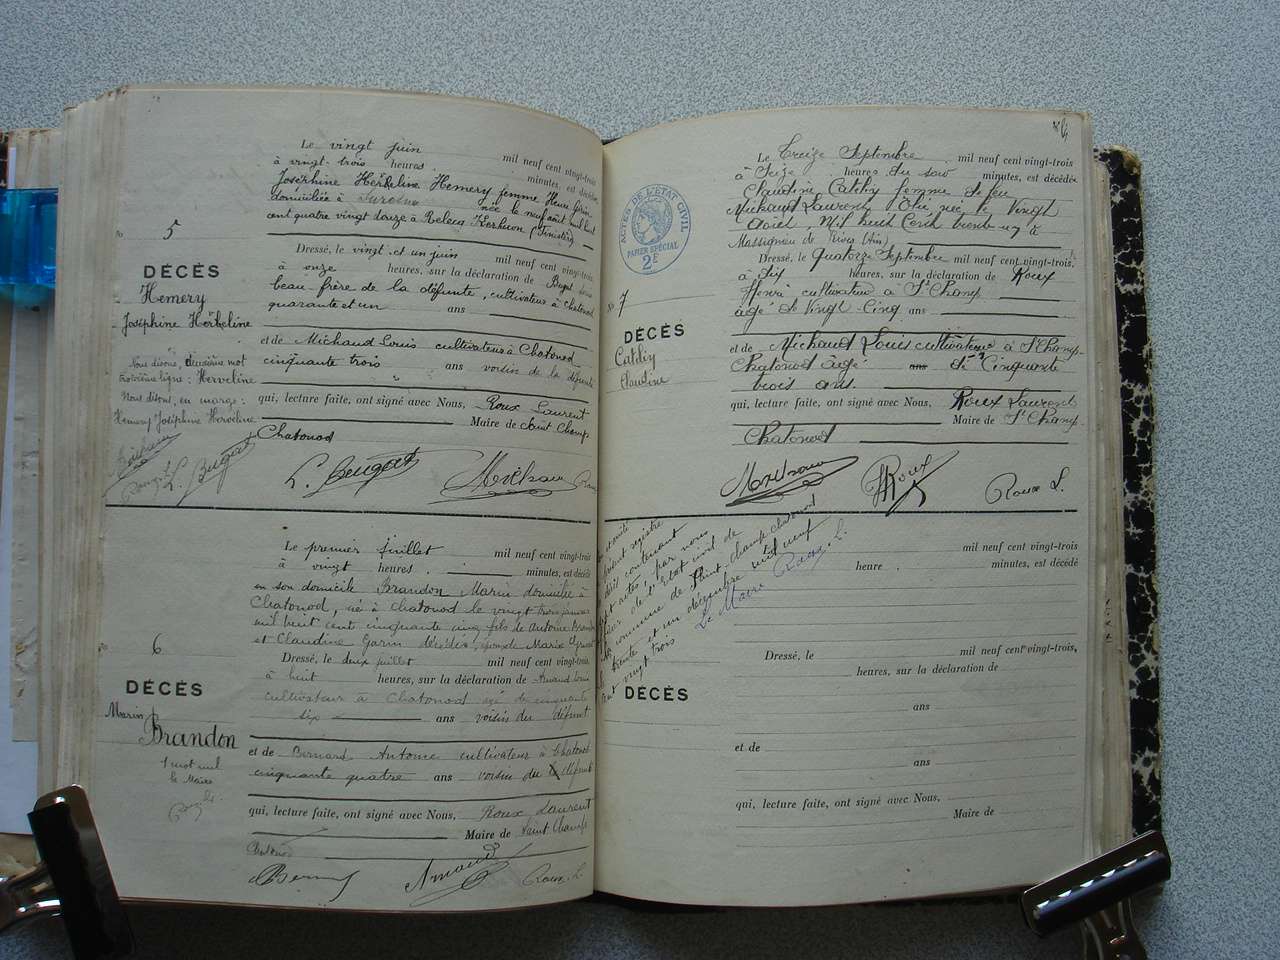 Le vingt juin mil neuf cent vingt-trois
à vingt-trois heures minutes, est décédée
Joséphine Herbeline Hemery femme Henri
domiciliée à née le neuf août mil huit
cent quatre vingt douze à Relecq Kerhuon (Finistère)
No 5
DÉCÈS
Hemery
Joséphine Herbeline
Nous disons, deuxième mot
troisième ligne : Herveline
Nous disons, en marge :
Hemery Joséphine Herveline
Dressé, le vingt et un juin mil neuf cent vingt-trois,
à onze heures, sur la déclaration de
beau-frère de la défunte, cultivateur à Chatonod
quarante et un ans
et de Michaud Louis cultivateur à Chatonod
cinquante trois ans voisin de la défunte
qui, lecture faite, ont signé avec Nous, Roux Laurent
Maire de Saint Champ
Chatonod
Le premier juillet mil neuf cent vingt-trois
à vingt heures minutes, est décédé
en son domicile Brandon Marin domicilié à
Chatonod, né à Chatonod le vingt trois janvier
mil huit cent cinquante cinq fils de Antoine Brandon
et Claudine Garin décédés, époux de Marie
6
DÉCÈS
Marin
Brandon
1 mot nul
le Maire
Dressé, le deux juillet mil neuf cent vingt-trois,
à huit heures, sur la déclaration de Arnaud Louis
cultivateur à Chatonod âgé de cinquante
six ans voisin du défunt
et de Bernard Antoine cultivateur à Chatonod
cinquante quatre ans voisin du défunt
qui, lecture faite, ont signé avec Nous, Roux Laurent
Maire de Saint Champ
Chatonod
Arnaud
Roux L.
Le Treize Septembre mil neuf cent vingt-trois
à Seize heures du soir minutes, est décédée
Claudine Cathy femme de feu
Michaud Laurent née le Vingt
Août Mil huit Cent trente
Massignieu de Rives (Ain)
ACTES DE L'ÉTAT CIVIL
PAPIER SPÉCIAL
2F
No 7
DÉCÈS
Cathy
Claudine
Dressé, le Quatorze Septembre mil neuf cent vingt-trois,
à Dix heures, sur la déclaration de Roux
Henri cultivateur à St Champ
âgé de Vingt Cinq ans
et de Michaud Louis cultivateur à St Champ
Chatonod âgé ans de Cinquante
trois ans.
qui, lecture faite, ont signé avec Nous, Roux Laurent
Maire de St Champ
Chatonod
Roux
Roux L.
registre
contenant
actes, par nous
de l'état civil de
commune de Saint-Champ-Chatonod
trente et un décembre mil neuf
cent vingt trois
Le Maire Roux. L.
Le mil neuf cent vingt-trois
heure minutes, est décédé
Dressé, le mil neuf cent vingt-trois,
heures, sur la déclaration de
DÉCÈS
ans
et de
ans
qui, lecture faite, ont signé avec Nous,
Maire de